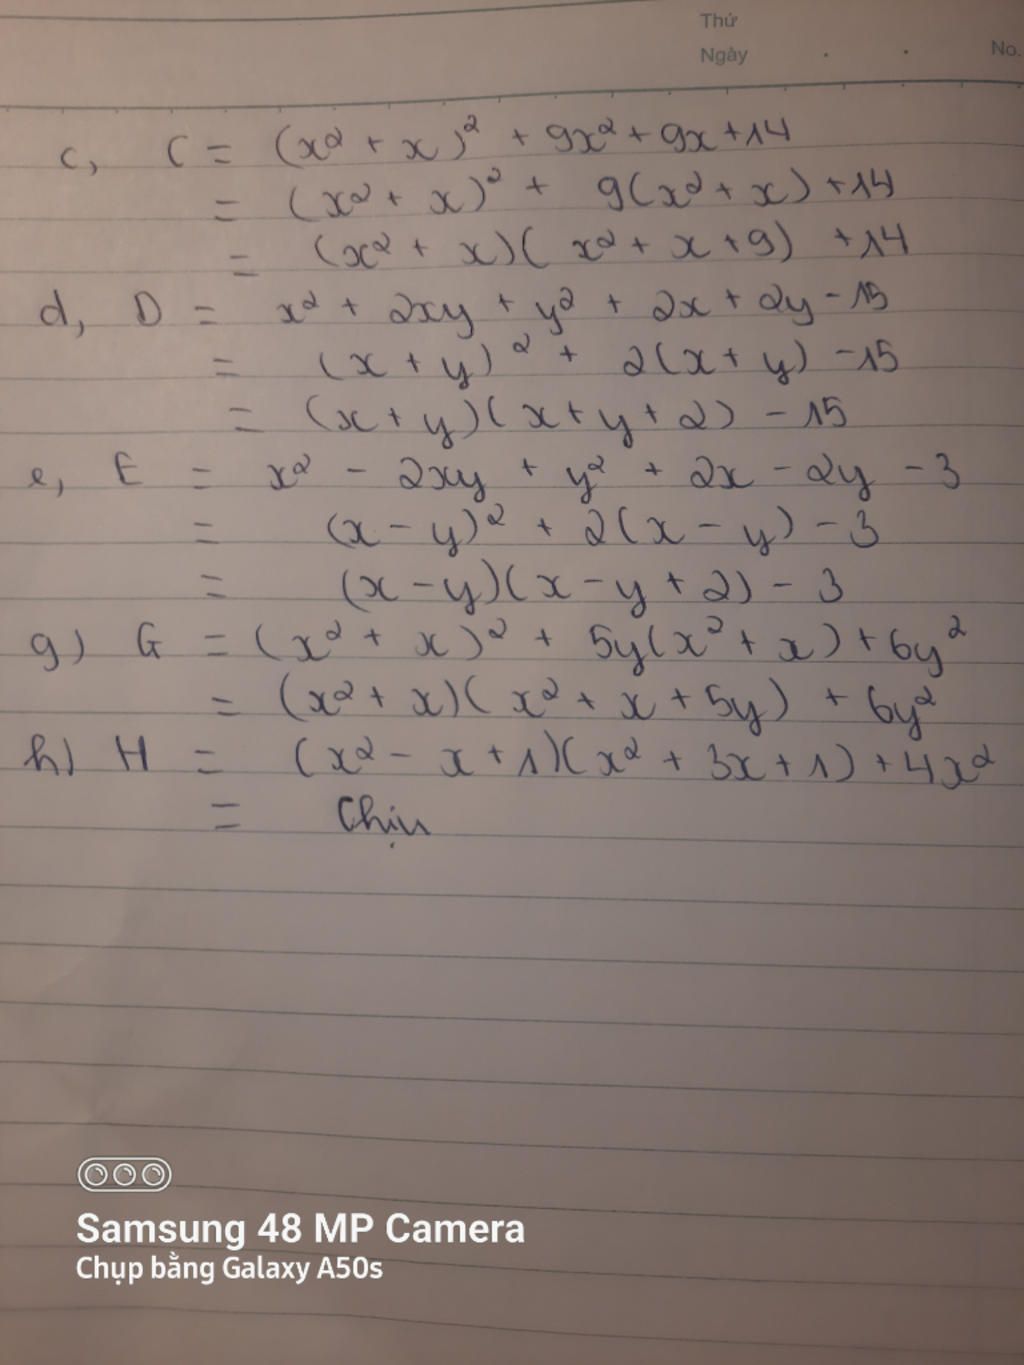 Thứ
Ngày . . No.
c, C = (x² + x)² + 9x² + 9x + 14
= (x² + x)² + 9(x² + x) + 14
= (x² + x)(x² + x + 9) + 14
d, D = x² + 2xy + y² + 2x + 2y - 15
= (x + y)² + 2(x + y) - 15
= (x + y)(x + y + 2) - 15
e, E = x² - 2xy + y² + 2x - 2y - 3
= (x - y)² + 2(x - y) - 3
= (x - y)(x - y + 2) - 3
g) G = (x² + x)² + 5y(x² + x) + 6y²
= (x² + x)(x² + x + 5y) + 6y²
h) H = (x² - x + 1)(x² + 3x + 1) + 4x²
= Chịu
Samsung 48 MP Camera
Chụp bằng Galaxy A50s